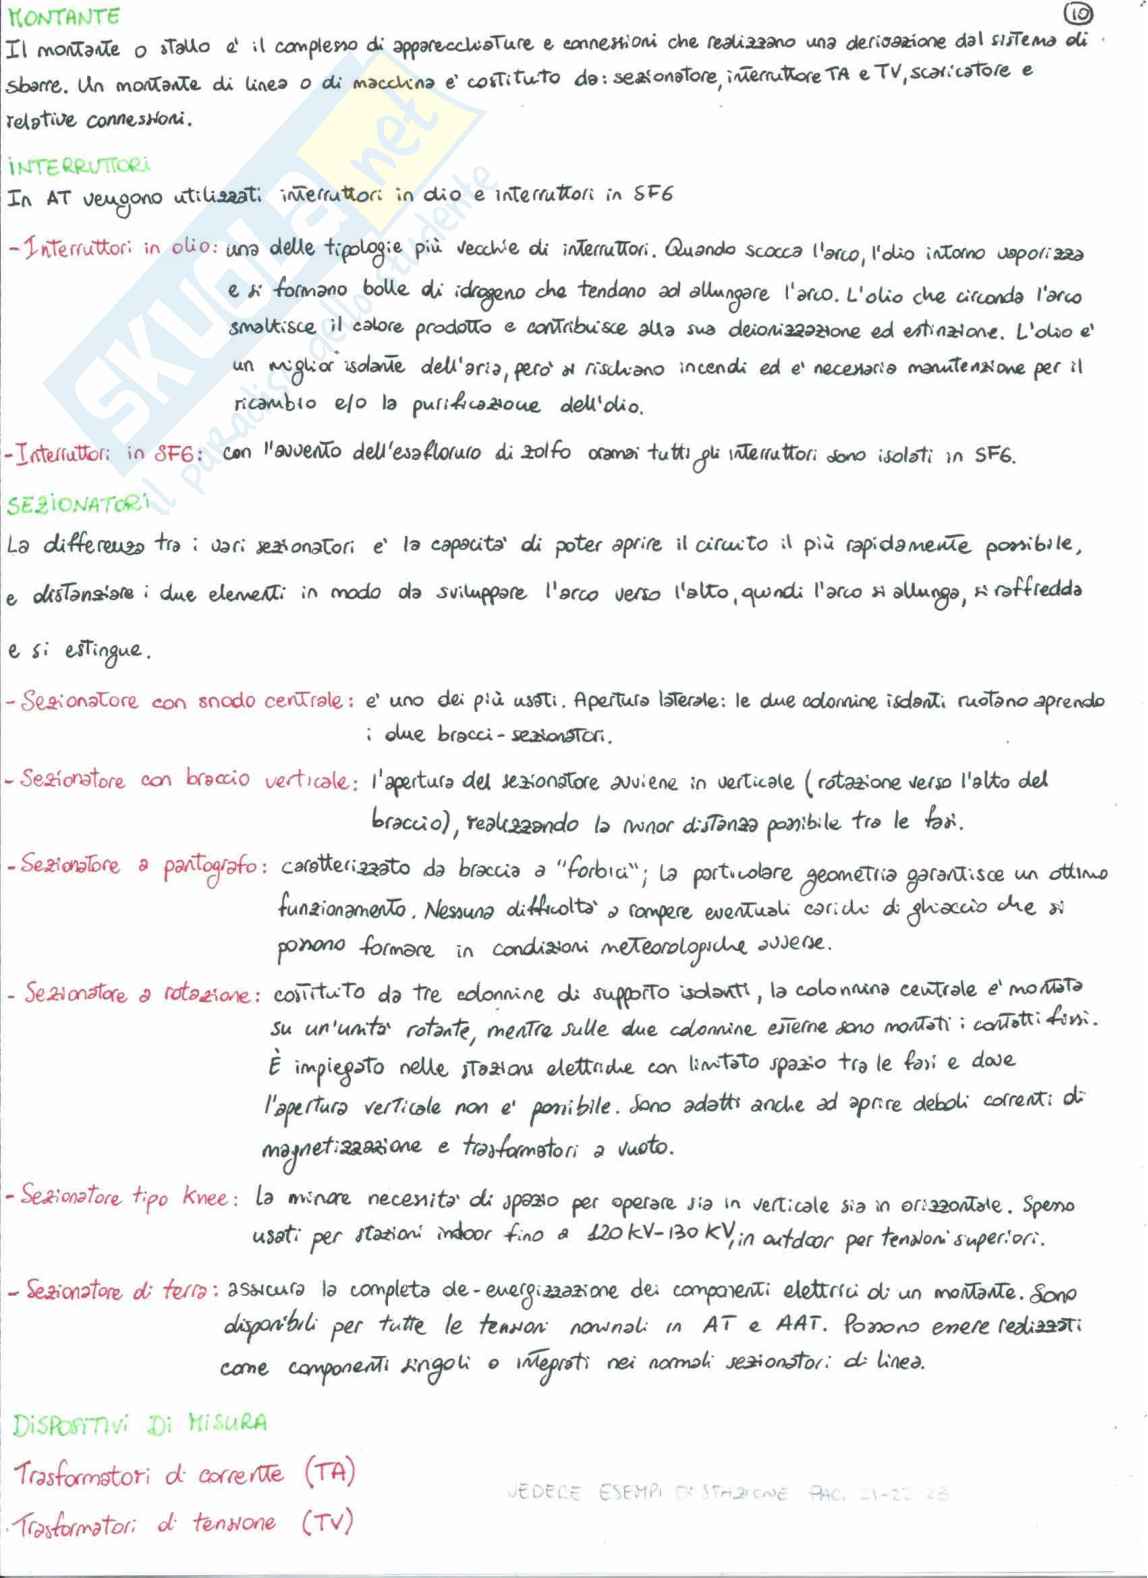 MONTANTE
10
Il montante o stallo e' il complesso di apparecchiature e connessioni che realizzano una derivazione dal sistema di
sbarre. Un montante di linea o di macchina e' costituto da: sezionatore, interruttore TA e TV, scaricatore e
relative connessioni.
INTERRUTTORI
In AT vengono utilizzati interruttori in olio e interruttori in SF6
- Interruttori in olio: una delle tipologie più vecchie di interruttori. Quando scocca l'arco, l'olio intorno vaporizza
e si formano bolle di idrogeno che tendono ad allungare l'arco. L'olio che circonda l'arco
smaltisce il calore prodotto e contribuisce alla sua deionizzazione ed estinzione. L'olio e'
un miglior isolante dell'aria, però si rischiano incendi ed e' necessaria manutenzione per il
ricambio e/o la purificazione dell'olio.
- Interruttori in SF6: con l'avvento dell'esafloruro di zolfo oramai tutti gli interruttori sono isolati in SF6.
SEZIONATORI
La differenza tra i vari sezionatori e' la capacita' di poter aprire il circuito il più rapidamente possibile,
e distanziare i due elementi in modo da sviluppare l'arco verso l'alto, quindi l'arco si allunga, si raffredda
e si estingue.
- Sezionatore con snodo centrale: e' uno dei più usati. Apertura laterale: le due colonnine isolanti ruotano aprendo
i due bracci-sezionatori.
- Sezionatore con braccio verticale: l'apertura del sezionatore avviene in verticale (rotazione verso l'alto del
braccio), realizzando la minor distanza possibile tra le fasi.
- Sezionatore a pantografo: caratterizzato da braccia a "forbici"; la particolare geometria garantisce un ottimo
funzionamento. Nessuna difficolta' a rompere eventuali carichi di ghiaccio che si
possono formare in condizioni meteorologiche avverse.
- Sezionatore a rotazione: costituto da tre colonnine di supporto isolanti, la colonnina centrale e' montata
su un'unita' rotante, mentre sulle due colonnine esterne sono montati i contatti fissi.
È impiegato nelle stazioni elettriche con limitato spazio tra le fasi e dove
l'apertura verticale non e' possibile. Sono adatti anche ad aprire deboli correnti di
magnetizzazione e trasformatori a vuoto.
- Sezionatore tipo Knee: la minore necessita' di spazio per operare sia in verticale sia in orizzontale. Spesso
usati per stazioni indoor fino a 120 kV-130 kV, in outdoor per tensioni superiori.
- Sezionatore di terra: assicura la completa de-energizzazione dei componenti elettrici di un montante. Sono
disponibili per tutte le tensioni nominali in AT e AAT. Possono essere realizzati
come componenti singoli o integrati nei normali sezionatori di linea.
DISPOSITIVI DI MISURA
Trasformatori di corrente (TA)
VEDERE ESEMPI DI STAZIONE PAG. 21-22-23
Trasformatori di tensione (TV)
SKUOLA.net
il paradiso dello studente